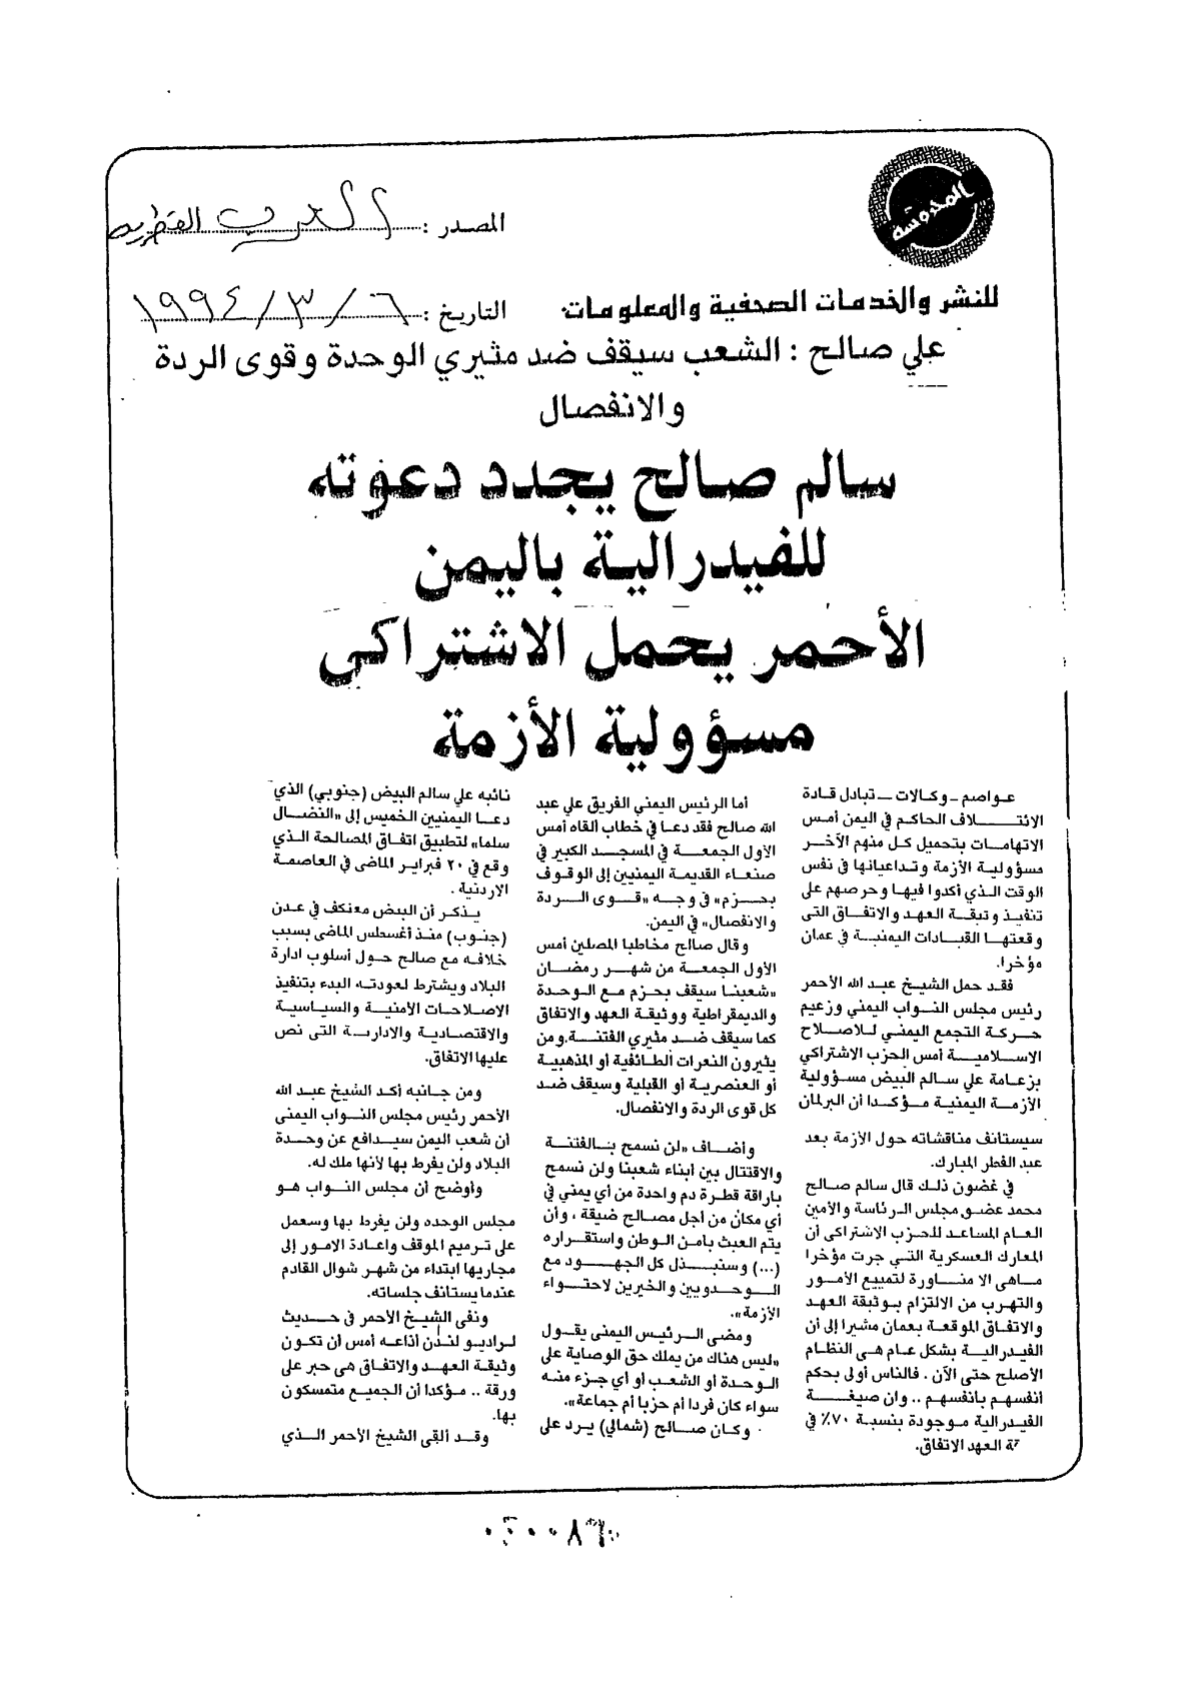 المحروسة
المصدر : العرب القطرية
للنشر والخدمات الصحفية والمعلومات
التاريخ : ٦ / ٣ / ١٩٩٤
علي صالح : الشعب سيقف ضد مثيري الوحدة وقوى الردة
والانفصال
سالم صالح يجدد دعوته
للفيدرالية باليمن
الأحمر يحمل الاشتراكي
مسؤولية الأزمة
عواصم - وكالات - تبادل قادة
الائتلاف الحاكم في اليمن أمس
الاتهامات بتحميل كل منهم الآخر
مسؤولية الأزمة وتداعياتها في نفس
الوقت الذي أكدوا فيها وحرصهم على
تنفيذ وثيقة العهد والاتفاق التى
وقعتها القيادات اليمنية في عمان
مؤخرا.
فقد حمل الشيخ عبد الله الأحمر
رئيس مجلس النواب اليمني وزعيم
حركة التجمع اليمني للاصلاح
الاسلامية أمس الحزب الاشتراكي
بزعامة علي سالم البيض مسؤولية
الأزمة اليمنية مؤكدا أن البرلمان
سيستانف مناقشاته حول الأزمة بعد
عيد الفطر المبارك.
في غضون ذلك قال سالم صالح
محمد عضو مجلس الرئاسة والأمين
العام المساعد للحزب الاشتراكي أن
المعارك العسكرية التي جرت مؤخرا
ماهى الا مناورة لتمييع الأمور
والتهرب من الالتزام بوثيقة العهد
والاتفاق الموقعة بعمان مشيرا إلى أن
الفيدرالية بشكل عام هى النظام
الأصلح حتى الآن . فالناس أولى بحكم
أنفسهم بانفسهم .. وان صيغة
الفيدرالية موجودة بنسبة ٧٠٪ في
ـة العهد الاتفاق.
أما الرئيس اليمني الفريق علي عبد
الله صالح فقد دعا في خطاب القاه أمس
الأول الجمعة في المسجد الكبير في
صنعاء القديمة اليمنيين إلى الوقوف
بحزم» في وجه «قوى الردة
والانفصال» في اليمن.
وقال صالح مخاطبا المصلين أمس
الأول الجمعة من شهر رمضان
«شعبنا سيقف بحزم مع الوحدة
والديمقراطية ووثيقة العهد والاتفاق
كما سيقف ضد مثيري الفتنة.ومن
يثيرون النعرات الطائفية أو المذهبية
أو العنصرية أو القبلية وسيقف ضد
كل قوى الردة والانفصال.
وأضاف «لن نسمح بالفتنة
والاقتتال بين أبناء شعبنا ولن نسمح
باراقة قطرة دم واحدة من أي يمني في
أي مكان من أجل مصالح ضيقة ، وأن
يتم العبث بامن الوطن واستقراره
(...) وسنبذل كل الجهود مع
الوحدويين والخيرين لاحتواء
الأزمة».
ومضى الرئيس اليمنى يقول
«ليس هناك من يملك حق الوصاية على
الوحدة أو الشعب او أي جزء منه
سواء كان فردا أم حزبا أم جماعة».
وكان صالح (شمالي) يرد على
نائبه علي سالم البيض (جنوبي) الذي
دعا اليمنيين الخميس إلى «النضال
سلما» لتطبيق اتفاق المصالحة الذي
وقع في ٢٠ فبراير الماضى في العاصمة
الاردنية .
يذكر أن البيض معتكف في عدن
(جنوب) منذ أغسطس الماضى بسبب
خلافه مع صالح حول أسلوب ادارة
البلاد ويشترط لعودته البدء بتنفيذ
الاصلاحات الأمنية والسياسية
والاقتصادية والادارية التى نص
عليها الاتفاق.
ومن جانبه أكد الشيخ عبد الله
الأحمر رئيس مجلس النواب اليمنى
أن شعب اليمن سيدافع عن وحدة
البلاد ولن يفرط بها لأنها ملك له.
وأوضح أن مجلس النواب هو
مجلس الوحده ولن يفرط بها وسعمل
على ترميم الموقف واعادة الامور إلى
مجاريها ابتداء من شهر شوال القادم
عندما يستانف جلساته.
ونفى الشيخ الأحمر فى حديث
لراديو لندن أذاعه أمس أن تكون
وثيقة العهد والاتفاق هى حبر على
ورقة .. مؤكدا أن الجميع متمسكون
بها.
وقد ألقى الشيخ الأحمر الذي